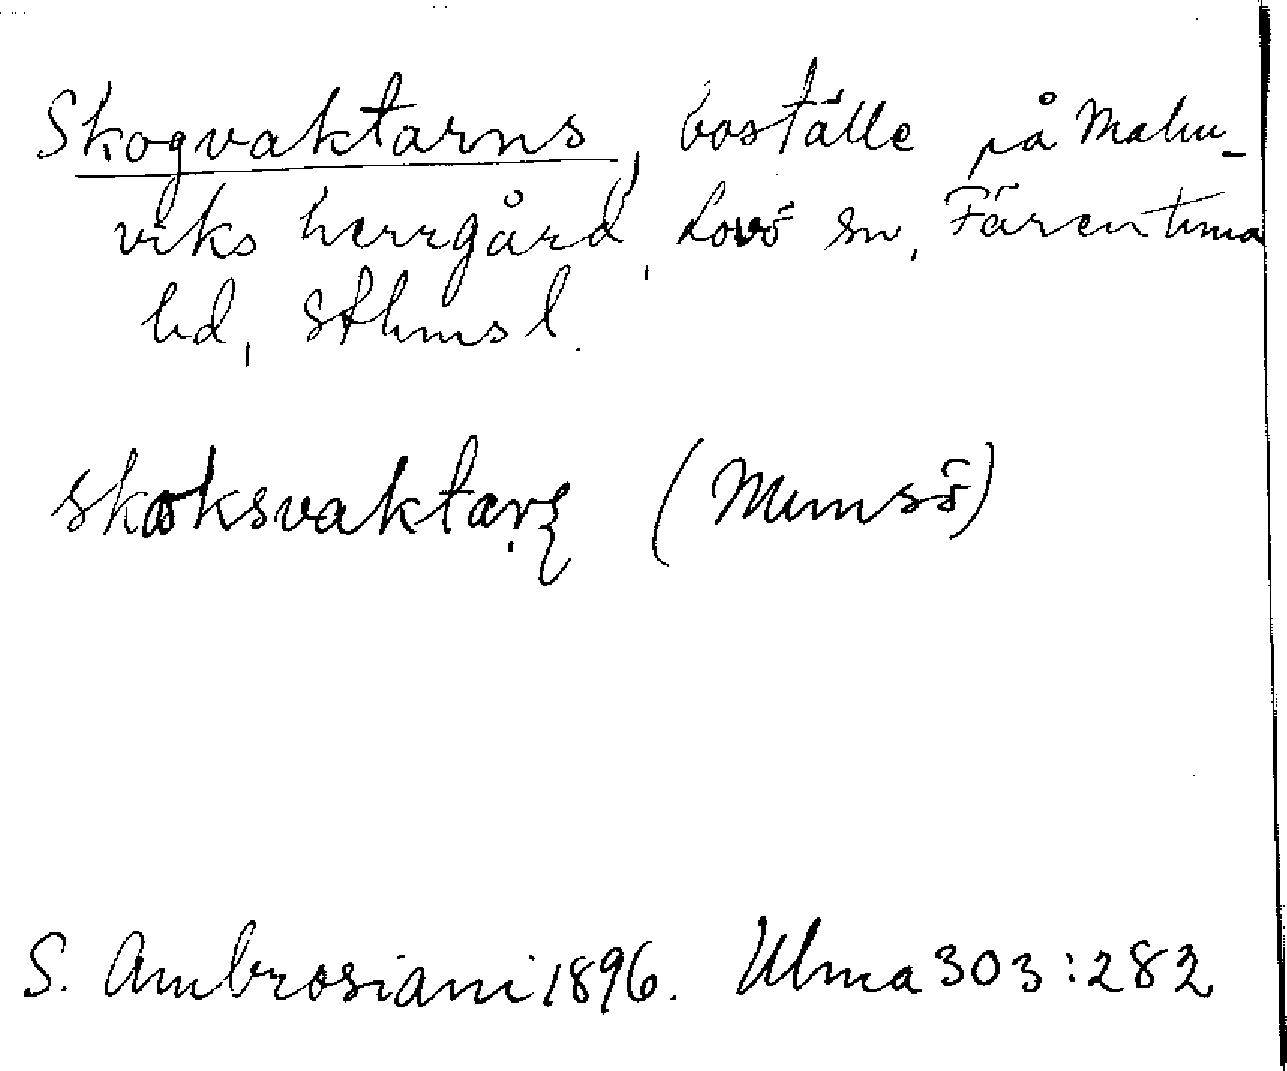 Skogvaktarns, boställe på Malm-
viks herrgård, Lovö sn, Färentuna
hd, Sthms l.
skoksvaktarṇs (Munsö)
S. Ambrosiani 1896. Ulma 303:282